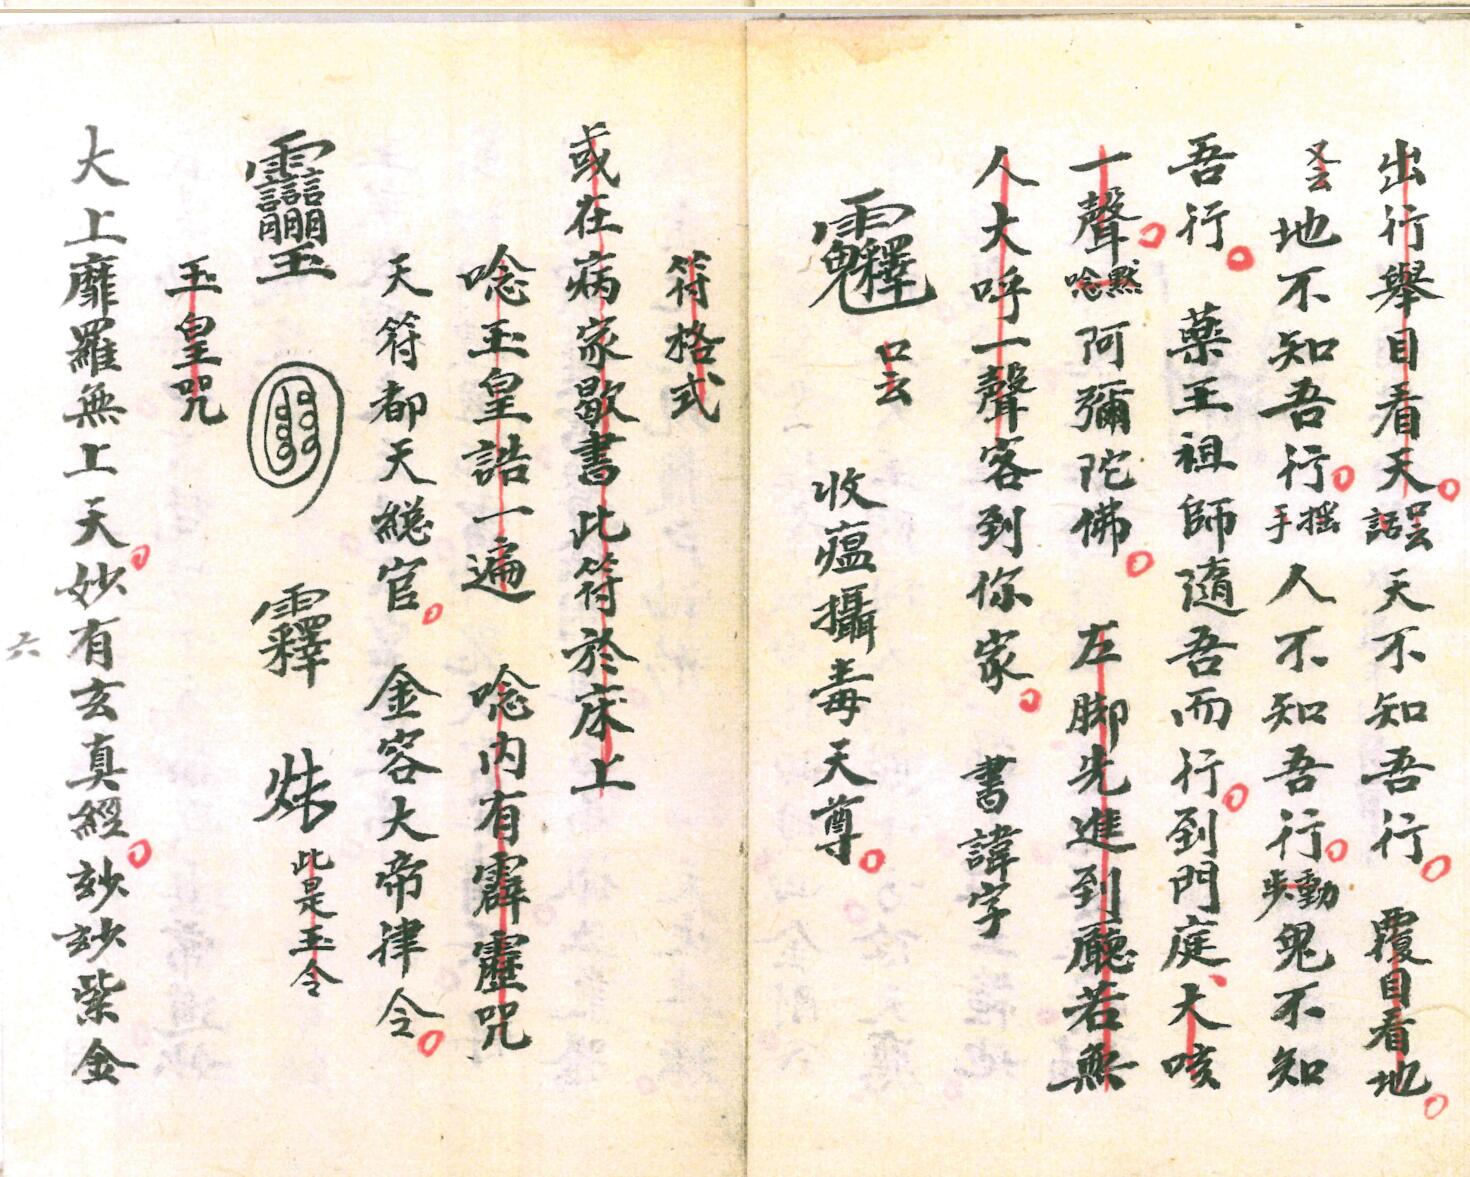 出行舉目看天口云話天不知吾行覆目看地
又云地不知吾行搖手人不知吾行動步鬼不知
吾行藥王祖師隨吾而行到門庭大咳
一聲默唸阿彌陀佛左脚先進到廳若無
人大呼一聲客到你家書諱字
口云收瘟攝毒天尊
符格式
或在病家歇書此符於床上
唸玉皇誥一遍唸內有霹靂咒
天符都天總官金容大帝律令
此是玉令
玉皇咒
大上靡羅無上天妙有玄真經玅玅紫金
六